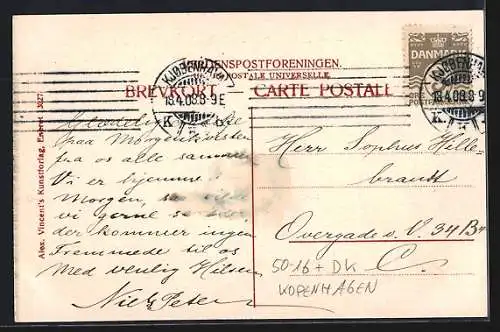 VERDENSPOSTFORENINGEN.
POSTALE UNIVERSELLE
BREVKORT. CARTE POSTALE
DANMARK
KJØBENHAVN
18.4.08.8-9E
K.
KJØBENHAVN
18.4.08.8-9
K.
Alex. Vincent's Kunstforlag, Eneret
paa Morgenkvisten
fra os alle sammen
Vi er hjemme i
Morgen, saa
vi gerne se
der kommer ingen
Fremmede til os
Med venlig Hilsen
Niels Peter
Herr Sophus Hille-
brandt
Overgade o. V. 34 B
C.
50-16 + DK
KOPENHAGEN